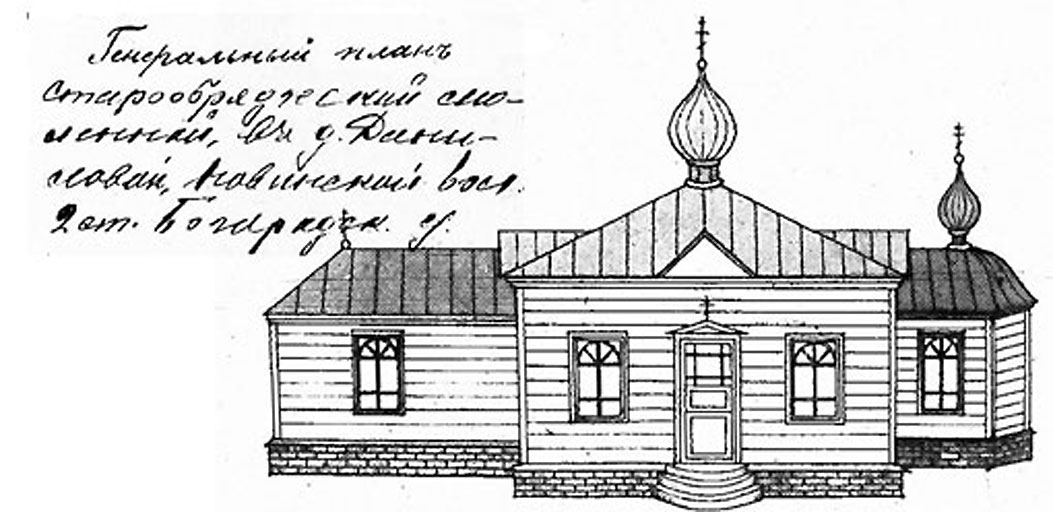 Генеральный планъ
старообрядческий мо-
ленной, въ д. Дани-
ловой, Новинской вол.
2 ст. Богородск. у.